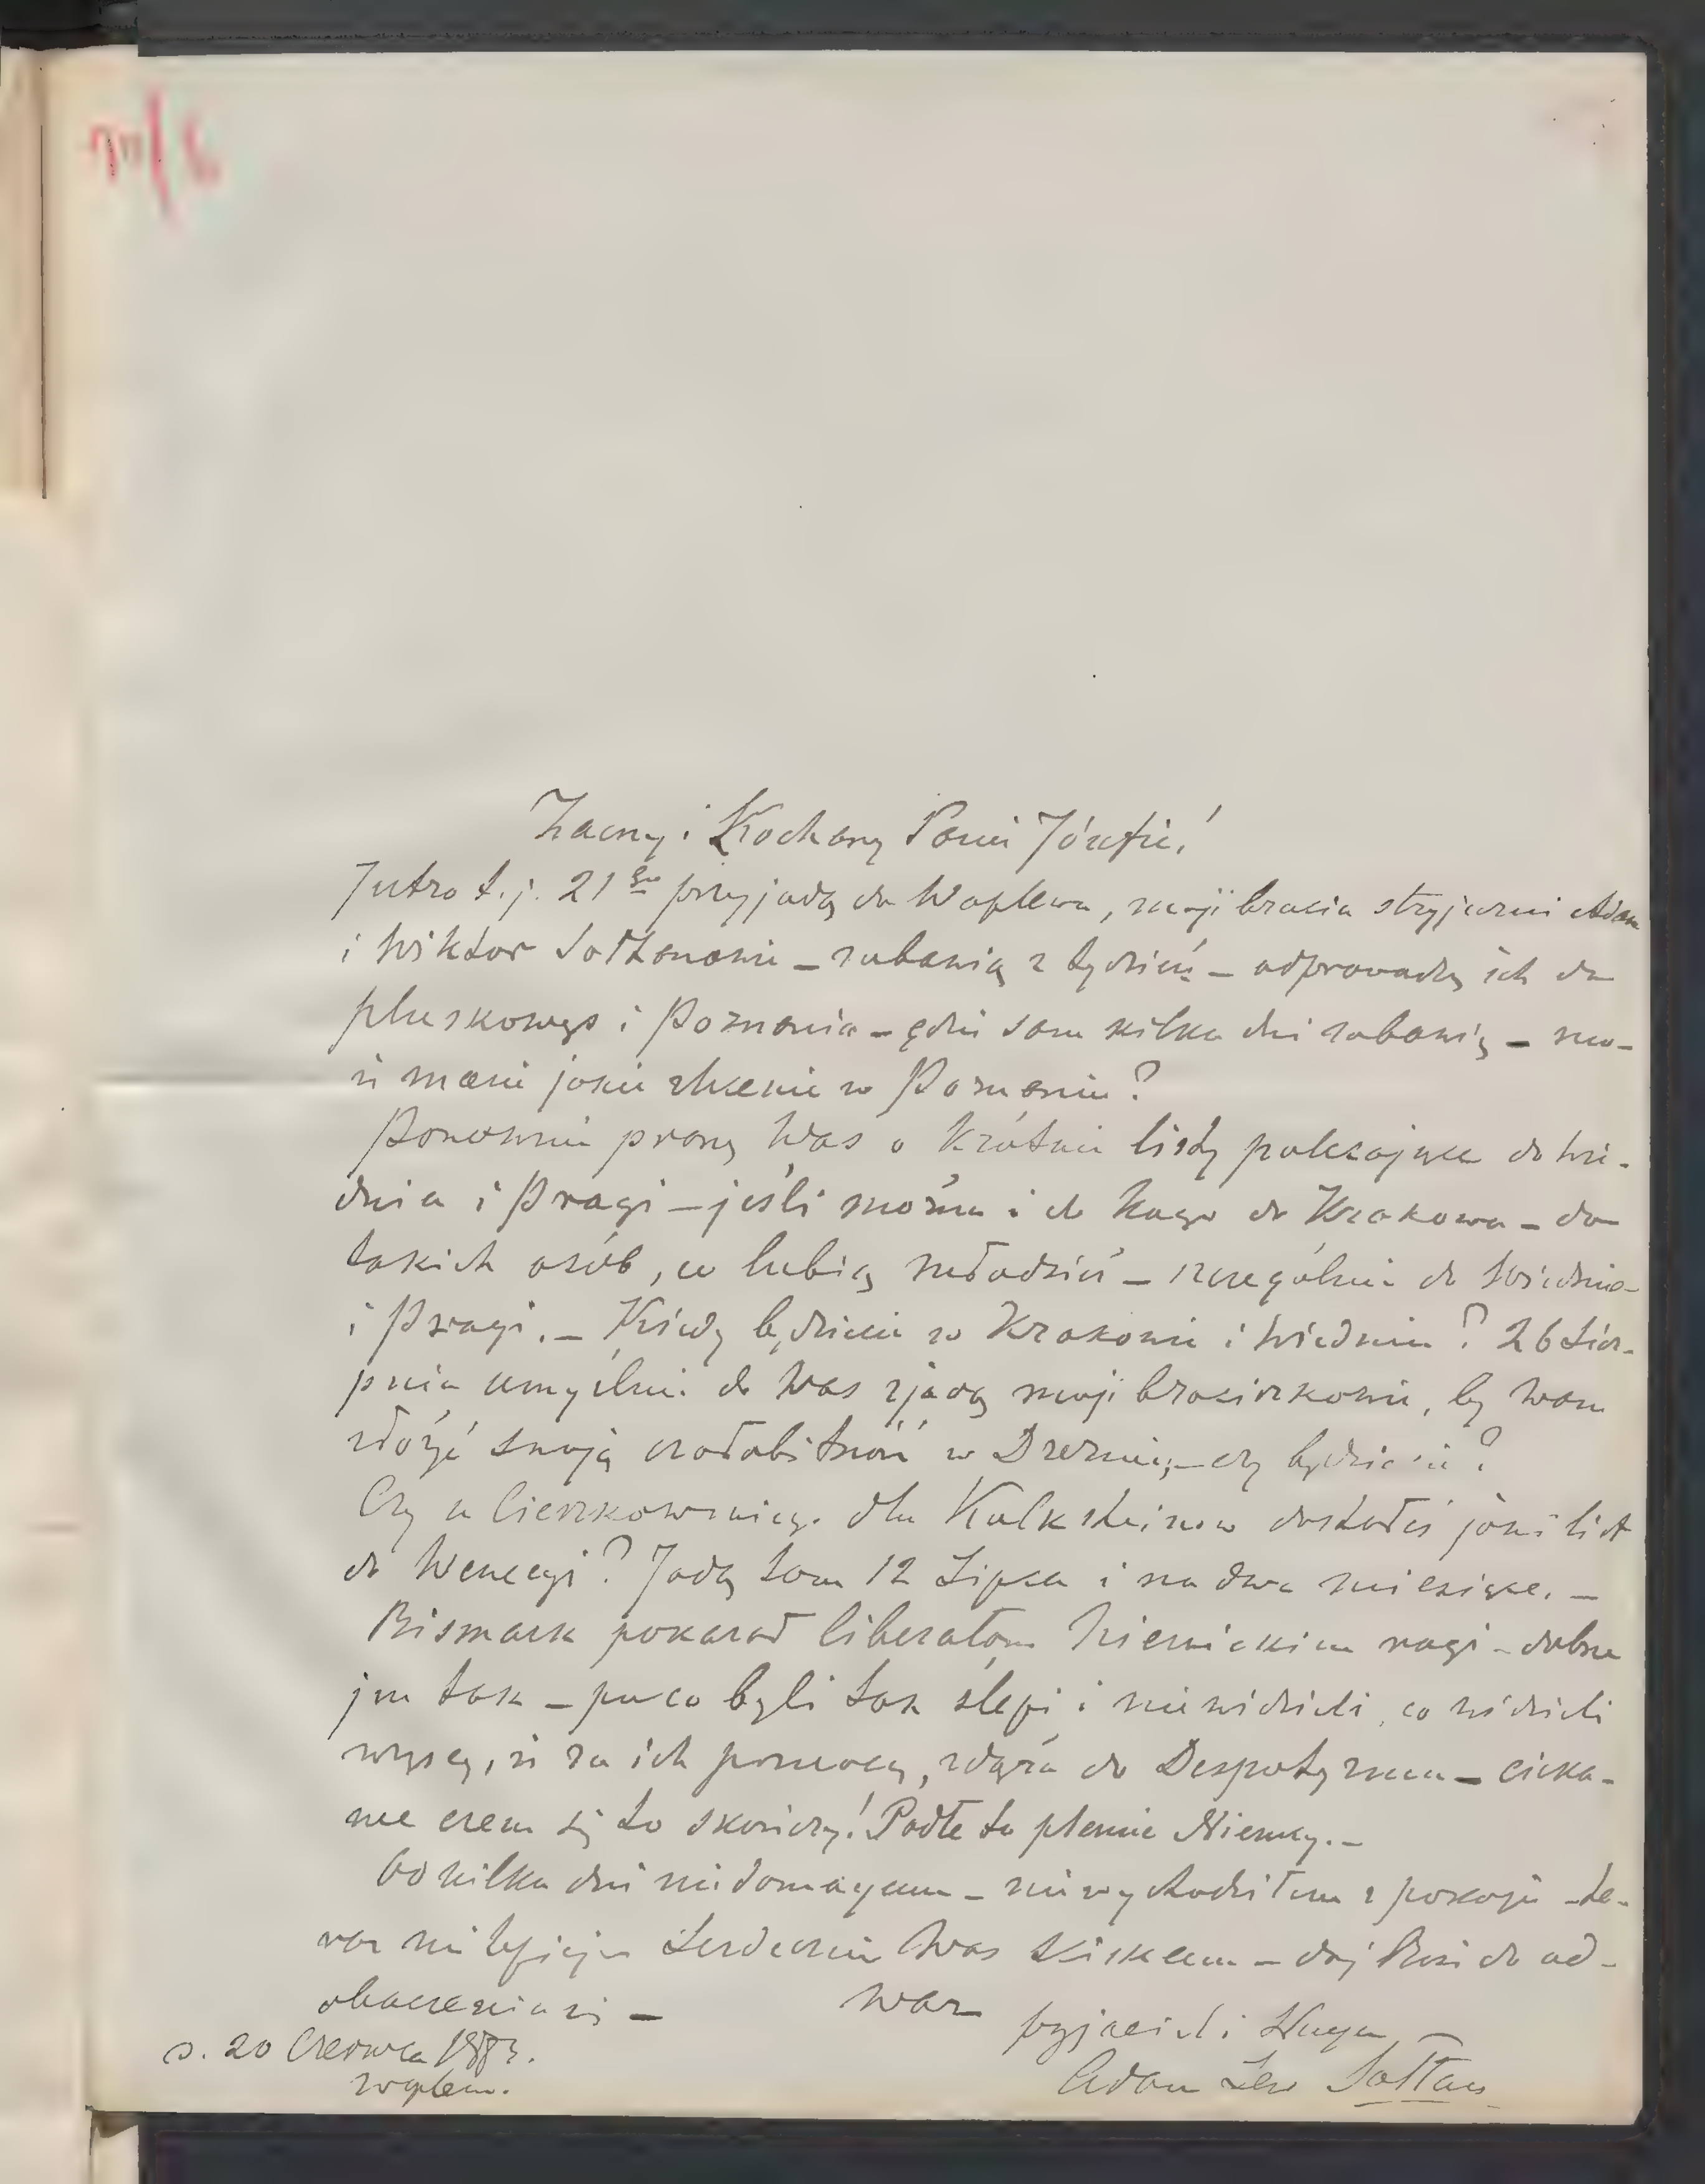 Zacny i Kochany Panie Józefie!
Jutro t. j. 21go przyjadą do Waplewa, moji bracia stryjeczni Adam
i Wiktor Sołtanowie – zabawią z tydzień – odprowadzę ich do
pluskowęs i Poznania – gdzie sam kilka dni zabawię – mo-
że macie jakie zlecenie w Poznaniu?
Ponownie proszę Was o krótkie listy polecające do Wie-
dnia i Pragi – jeśli można i do kogo do Krakowa – do
takich osób, co lubią młodzież – szczególnie do Wiednia
i Pragi. – Kiedy będziecie w Krakowie i Wiedniu? 26 Sier-
pnia umyślnie do Was zjadą moji braciszkowie, by Wam
złożyć swoją czołobitność w Dreznie, – czy będziecie?
Czy u Cieszkowskiego dla Kalksteinow dostałeś jaki list
do Wenecyi? Jadą tam 12 Lipca i na dwa miesiące. –
Bismark pokazał liberałom Niemieckim rogi – dobrze
im tak – po co byli tak ślepi i niewidzieli, co widzieli
wszyscy, że za ich pomocą, zdąża do Despotyzmu – cieka-
we czem się to skończy! Podłe to plemie Niemcy. –
Od kilku dni niedomagam – niewychodziłem z pokoju – te-
raz mi lepiej – Serdecznie Was ściskam – daj Boże do od-
obaczenia się –
Wasz
przyjaciel i sługa –
d. 20 Czerwca 1883.
Waplewo.
Adam Lew Sołtan